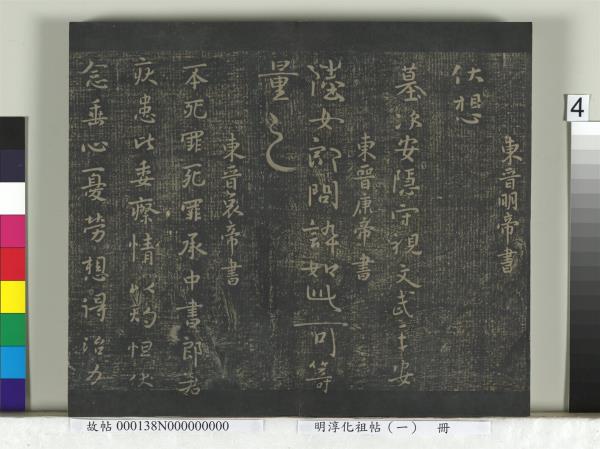 東晉明帝書
伏想
墓次安隱守視文武平安
東晉康帝書
陸女郎問訴如此可籌
量之
東晉哀帝書
一本死罪死罪承中書郎君
疾患比委療情以灼怛伏
念垂心憂勞想得治力
4
故帖 000138N000000000
明淳化祖帖（一） 冊